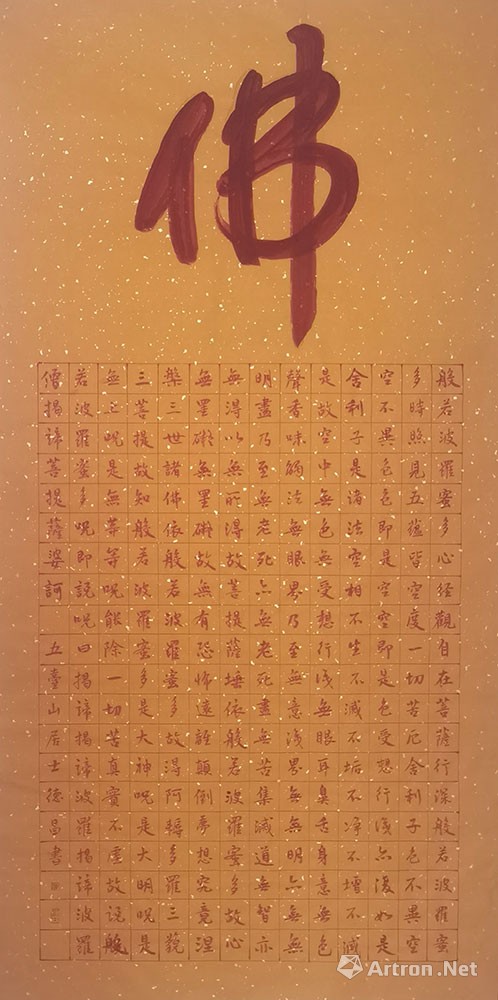 佛
般若波羅蜜多心经觀自在菩薩行深般若波羅蜜
多時照見五蘊皆空度一切苦厄舍利子色不異空
空不異色色即是空空即是色受想行識亦復如是
舍利子是諸法空相不生不滅不垢不净不增不減
是故空中無色無受想行識無眼耳鼻舌身意無色
聲香味觸法無眼界乃至無意識界無無明亦無無
明盡乃至無老死亦無老死盡無苦集滅道無智亦
無得以無所得故菩提薩埵依般若波羅蜜多故心
無罣礙無罣礙故無有恐怖遠離顛倒夢想究竟涅
槃三世諸佛依般若波羅蜜多故得阿耨多羅三藐
三菩提故知般若波羅蜜多是大神呪是大明呪是
無上呪是無等等呪能除一切苦真實不虛故說般
若波羅蜜多呪即說呪曰揭諦揭諦波羅揭諦波羅
僧揭諦菩提薩婆訶 五臺山居士德昌書
Artron.Net